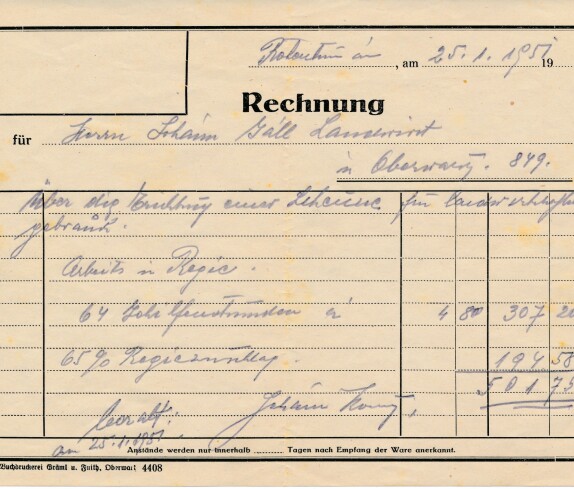 , am 25.1.1951 19
Rechnung
für Herrn Johann Gáll Landwirt
in Oberwart. 849.
Über die Errichtung einer Scheune für landwirtschaftl
gebrauch.
Arbeits in Regie.
64 à 4 80 307 20
65% Regiezuschlag. 194 58
501 75
Johann
am 25.1.1951
Anstände werden nur innerhalb Tagen nach Empfang der Ware anerkannt.
Buchdruckerei Gräml u. Fuith, Oberwart 4408